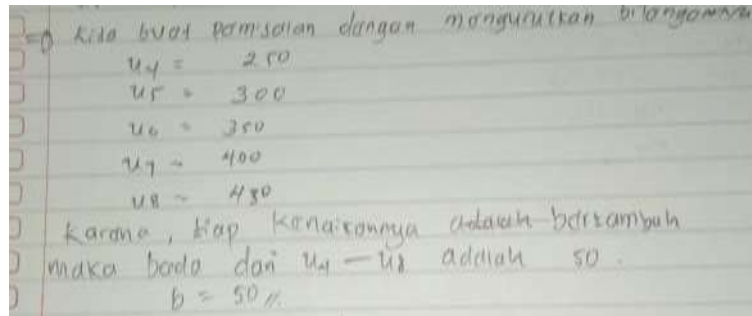 => Kita buat pemisalan dengan mengurutkan bilangannya
U4 = 250
U5 = 300
U6 = 350
U7 = 400
U8 = 450
Karena, tiap kenaikannya adalah bertambah
maka beda dari U4 - U8 adalah 50.
b = 50 //